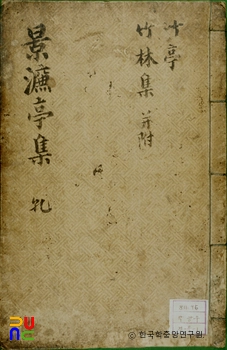 竹亭
竹林集 并附
景濂亭集
ⓒ한국학중앙연구원